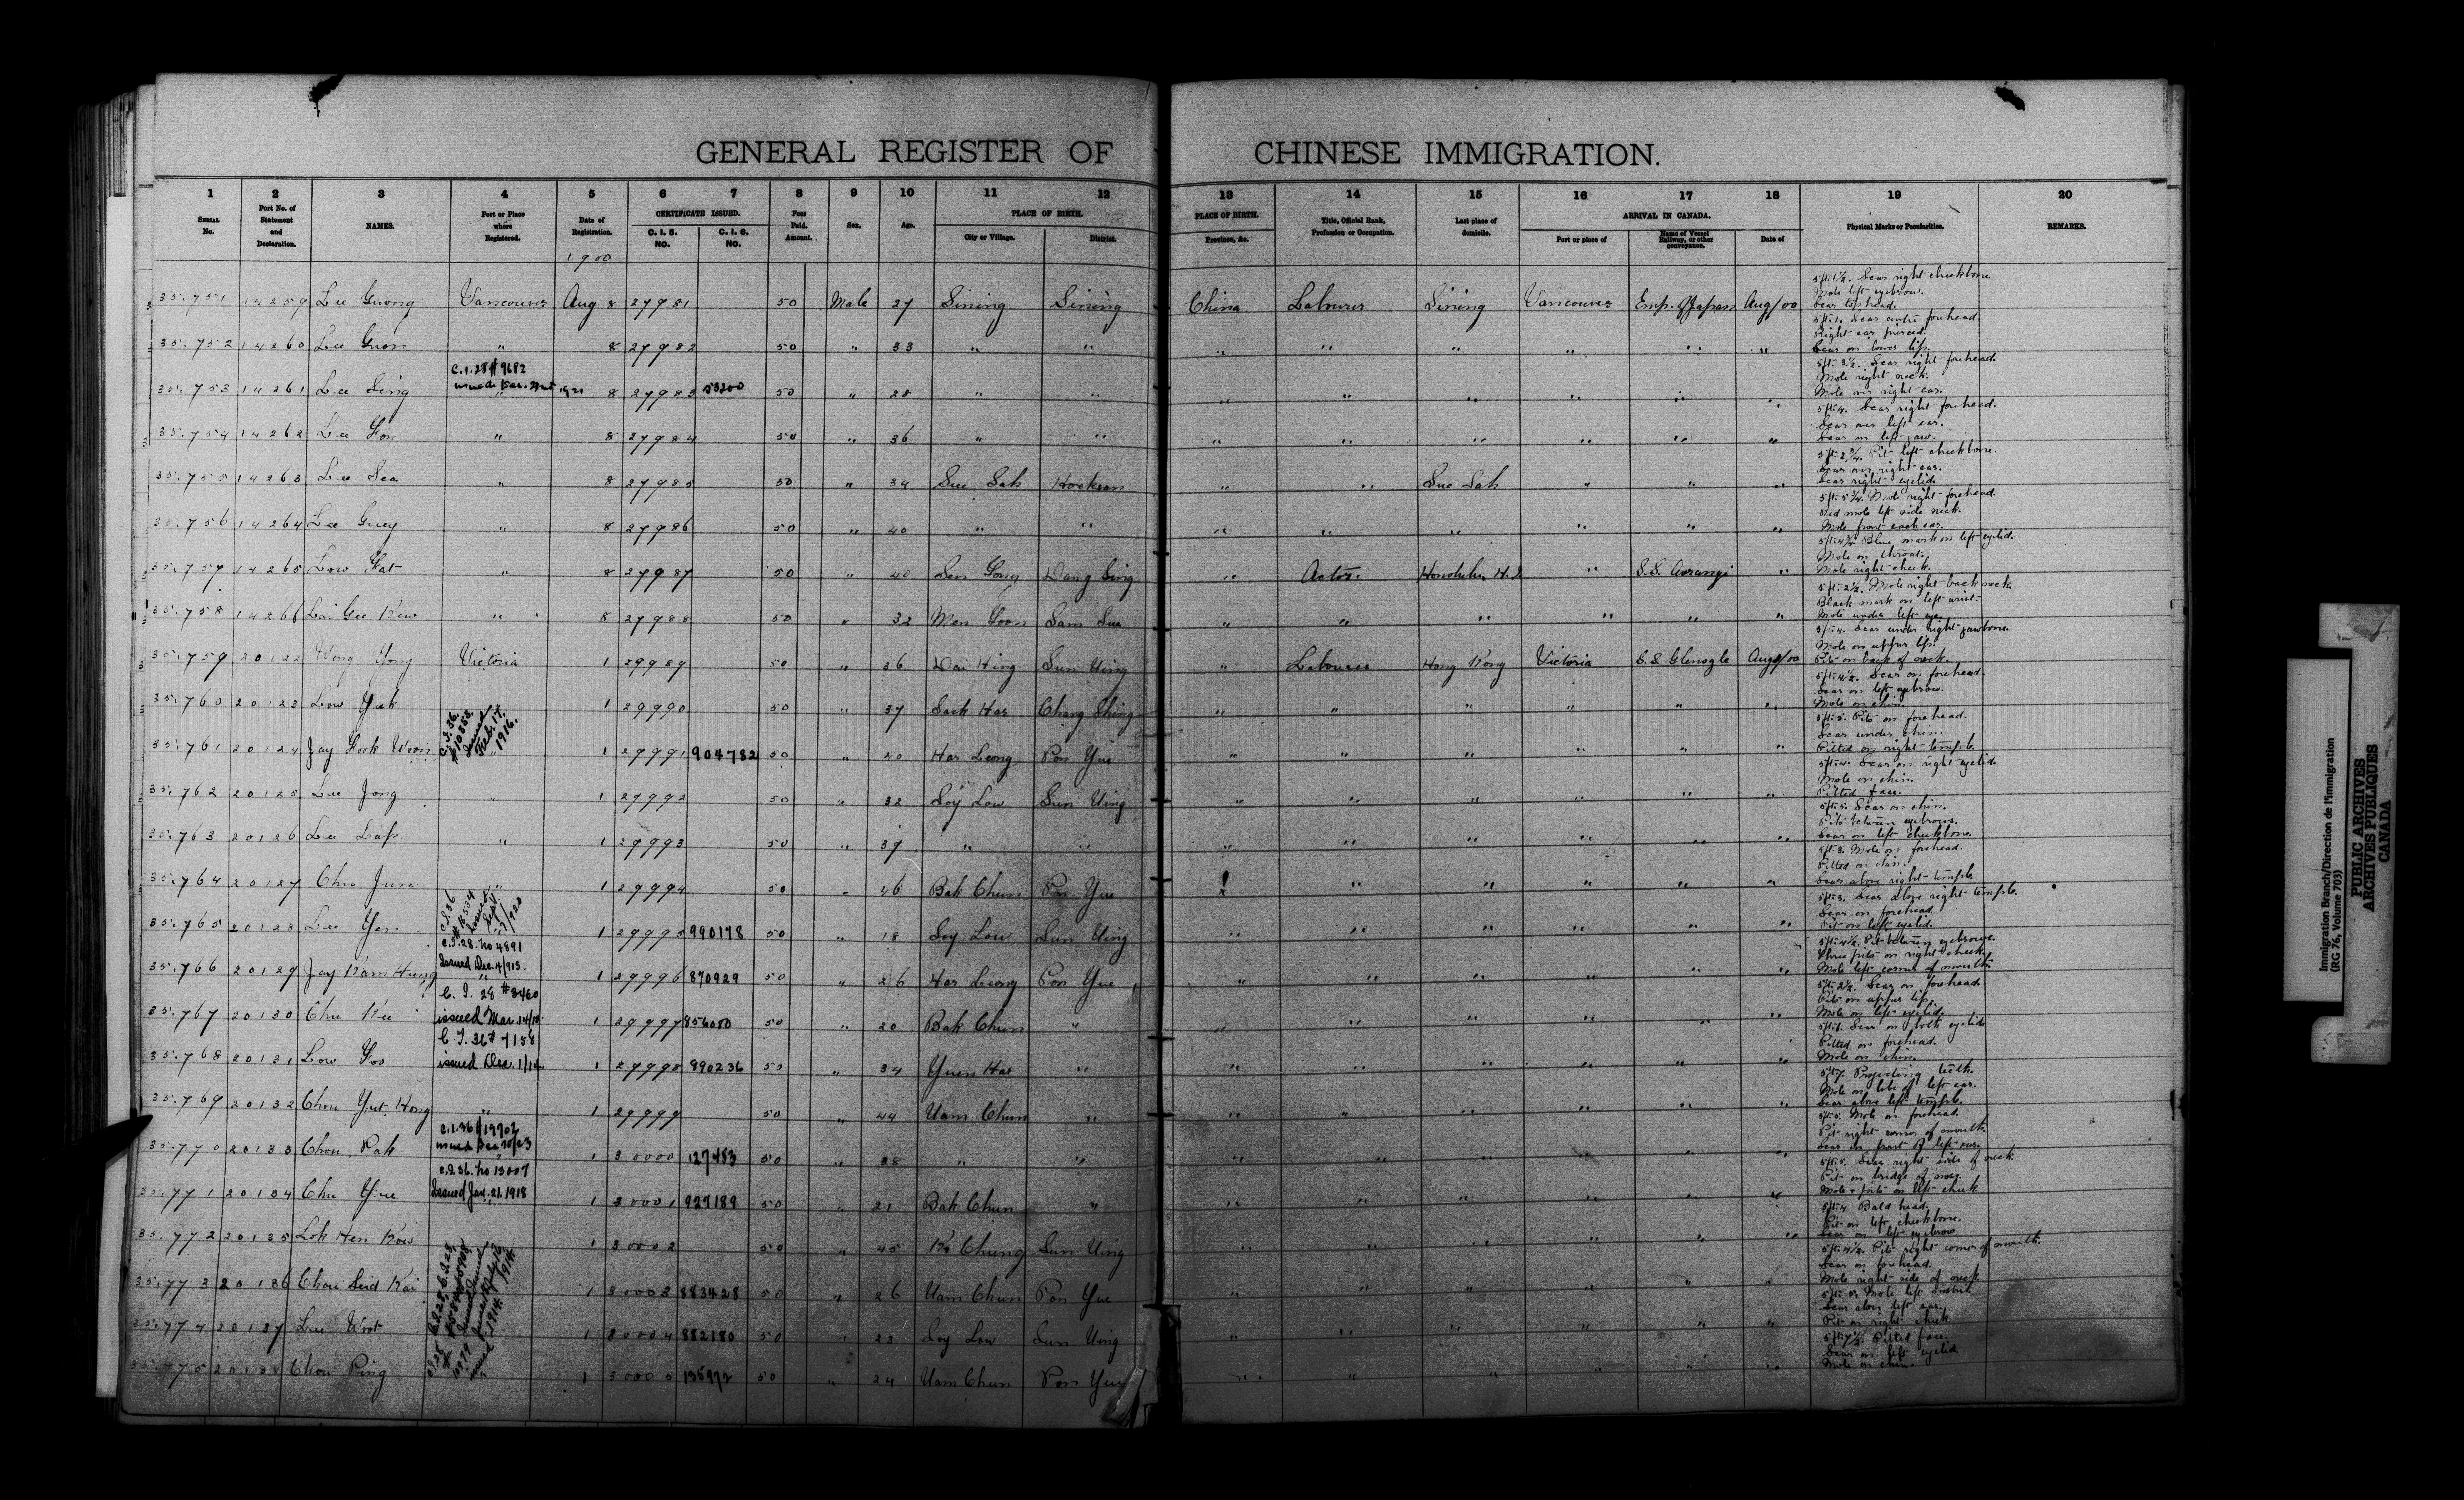 GENERAL REGISTER OF CHINESE IMMIGRATION.
1 2 3 4 5 6 7 8 9 10 11 12 13 14 15 16 17 18 19 20
SERIAL No. Port No. of Statement and Declaration. NAMES. Port or Place where Registered. Date of Registration. CERTIFICATE ISSUED. C. I. 5. NO. C. I. 6. NO. Fees Paid. Amount. Sex. Age. PLACE OF BIRTH. City or Village. District. PLACE OF BIRTH. Province, &c. Title, Official Rank, Profession or Occupation. Last place of domicile. ARRIVAL IN CANADA. Port or place of Name of Vessel Railway, or other conveyance. Date of Physical Marks or Peculiarities. REMARKS.
1900
35.751 14259 Lee Guong Vancouver Aug 8 27981 50 Male 27 Sining Sining China Labourer Sining Vancouver Emp. of Japan Aug/00 5ft. 1½. Scar right cheekbone Mole left eyebrow. Scar top head.
35.752 14260 Lee Guon " 8 27982 50 " 33 " " " " " " " " 5ft. 1. Scar centre forehead. Right ear pierced. Scar on lower lip.
35.753 14261 Lee Sing C.I.28 # 9682 " 8 27983 53200 50 " 28 " " " " " " " " 5ft. 3½. Scar right forehead. Mole right neck. Mole over right ear.
35.754 14262 Lee Fon " 8 27984 50 " 36 " " " " " " " " 5ft. 4. Scar right forehead. Scar over left ear. Scar on left jaw.
35.755 14263 Lee Sea " 8 27985 50 " 34 Sue Sah Hocksan " " Sue Sah " " " 5ft. 2¾. Pit left cheekbone. Scar over right ear. Scar right eyelid.
35.756 14264 Lee Guey " 8 27986 50 " 40 " " " " " " " " Mole right forehead. Red mole left side neck. Mole front each ear.
35.757 14265 Low Fat " 8 27987 50 " 40 Sen Gong Dang Sing " Actor. Honolulu H.I. " S.S. Aorangi " Blue mark on left eyelid. Mole on throat. Mole right cheek.
35.758 14266 Lai Gee Kew " 8 27988 50 " 32 Men Goon Sam Sue " " " " " " 5ft. 2½. Mole right back neck. Black mark on left wrist. Mole under left eye.
35.759 20122 Wong Yong Victoria 1 29989 50 " 36 Dai Hing Sun Ning " Labourer Hong Kong Victoria S.S. Glenogle 5ft. 4. Scar under right jawbone. Mole on upper lip. Pit on back of neck.
35.760 20123 Low Yuck 1 29990 50 " 37 Sack Har Chang Shing " " " " " " 5ft. 4½. Scar on forehead. Scar on left eyebrow. Mole on chin.
35.761 20124 Jay Fook Woon C.I.36. #10853. issued Feb. 17. 1916. " 1 29991 904782 50 " 20 Har Leong Pon Yue " " " " " " 5ft. 5. Pits on forehead. Scar under chin. Pitted on right temple.
35.762 20125 Lee Jong " 1 29992 50 " 32 Soy Low Sun Ning " " " " " " 5ft. 4. Scar on right eyelid. Mole on chin. Pitted face.
35.763 20126 Lee Lap " 1 29993 50 " 39 " " " " " " " " 5ft. 5. Scar on chin. Pits between eyebrows. Scar on left cheekbone.
35.764 20127 Chu Jun " 1 29994 50 " 46 Bak Chun Pon Yue " " " " " " 5ft. 3. Mole on forehead. Pitted on chin. Scar above right temple.
35.765 20128 Lee Yen C.I.36 1 29995 990178 50 " 18 Soy Low Sun Ning " " " " " " 5ft. 3. Scar above right temple. Scar on forehead. Pit on left eyelid.
35.766 20129 Jay Kam Hung C.I.28. No 4891 Issued Dec. 4/913. " 1 29996 870929 50 " 26 Har Leong Pon Yue " " " " " " 5ft. 4½. Pit between eyebrows. Three pits on right cheek. Mole left corner of mouth.
35.767 20130 Chu Kee C. I. 28 #8460 issued Mar. 1 29997 50 " 20 Bak Chun " " " " " " " 5ft. 2½. Scar on forehead. Pits on upper lip. Mole on left eyelid.
35.768 20131 Low Foo C. I. 36 # 7158 issued Dec. 1/14. 1 29998 890236 50 " 34 Yuen Har " " " " " " " Scar on both eyelids Pitted on forehead. Mole on chin.
35.769 20132 Chou Yut Hong " 1 29999 50 " 44 Uam Chun " " " " " " " 5ft. 7. Projecting teeth. Mole on lobe of left ear. Scar above left temple.
35.770 20133 Chou Pak C.I.36 # 19702 1 30000 127483 50 " 38 " " " " " " " " 5ft. 5. Mole on forehead. Pit right corner of mouth. Scar in front of left ear.
35.771 20134 Chu Yue C.I.36. No 13007 Issued Jan. 21. 1918 " 1 30001 927189 50 " 21 Bak Chun " " " " " " " 5ft. 5. Scar right side of neck. Pit on bridge of nose. Mole & pits on left cheek
35.772 20135 Lok Hen Kow 1 30002 50 " 45 Ko Chung Sun Ning " " " " " " 5ft. 4 Bald head. Pit on left cheekbone. Scar on left eyebrow
35.773 20136 Chou Suid Kai 1 30003 883428 50 " 26 Uam Chun Pon Yue " " " " " " 5ft. 4½. Pits right corner of mouth. Scar on forehead. Mole right side of neck
35.774 20137 Lee Wot 1 30004 882180 50 " 23 Soy Low Sun Ning " " " " " " Mole left nostril Scar above left ear. Pit on right cheek
35.775 20138 Chou Ping 1 30005 50 " 24 Uam Chun Pon Yue " " " " " " 5ft. 7½. Pitted face. Scar on left eyelid Mole on chin.
Immigration Branch/Direction de l'immigration
(RG 76, Volume 703)
PUBLIC ARCHIVES
ARCHIVES PUBLIQUES
CANADA